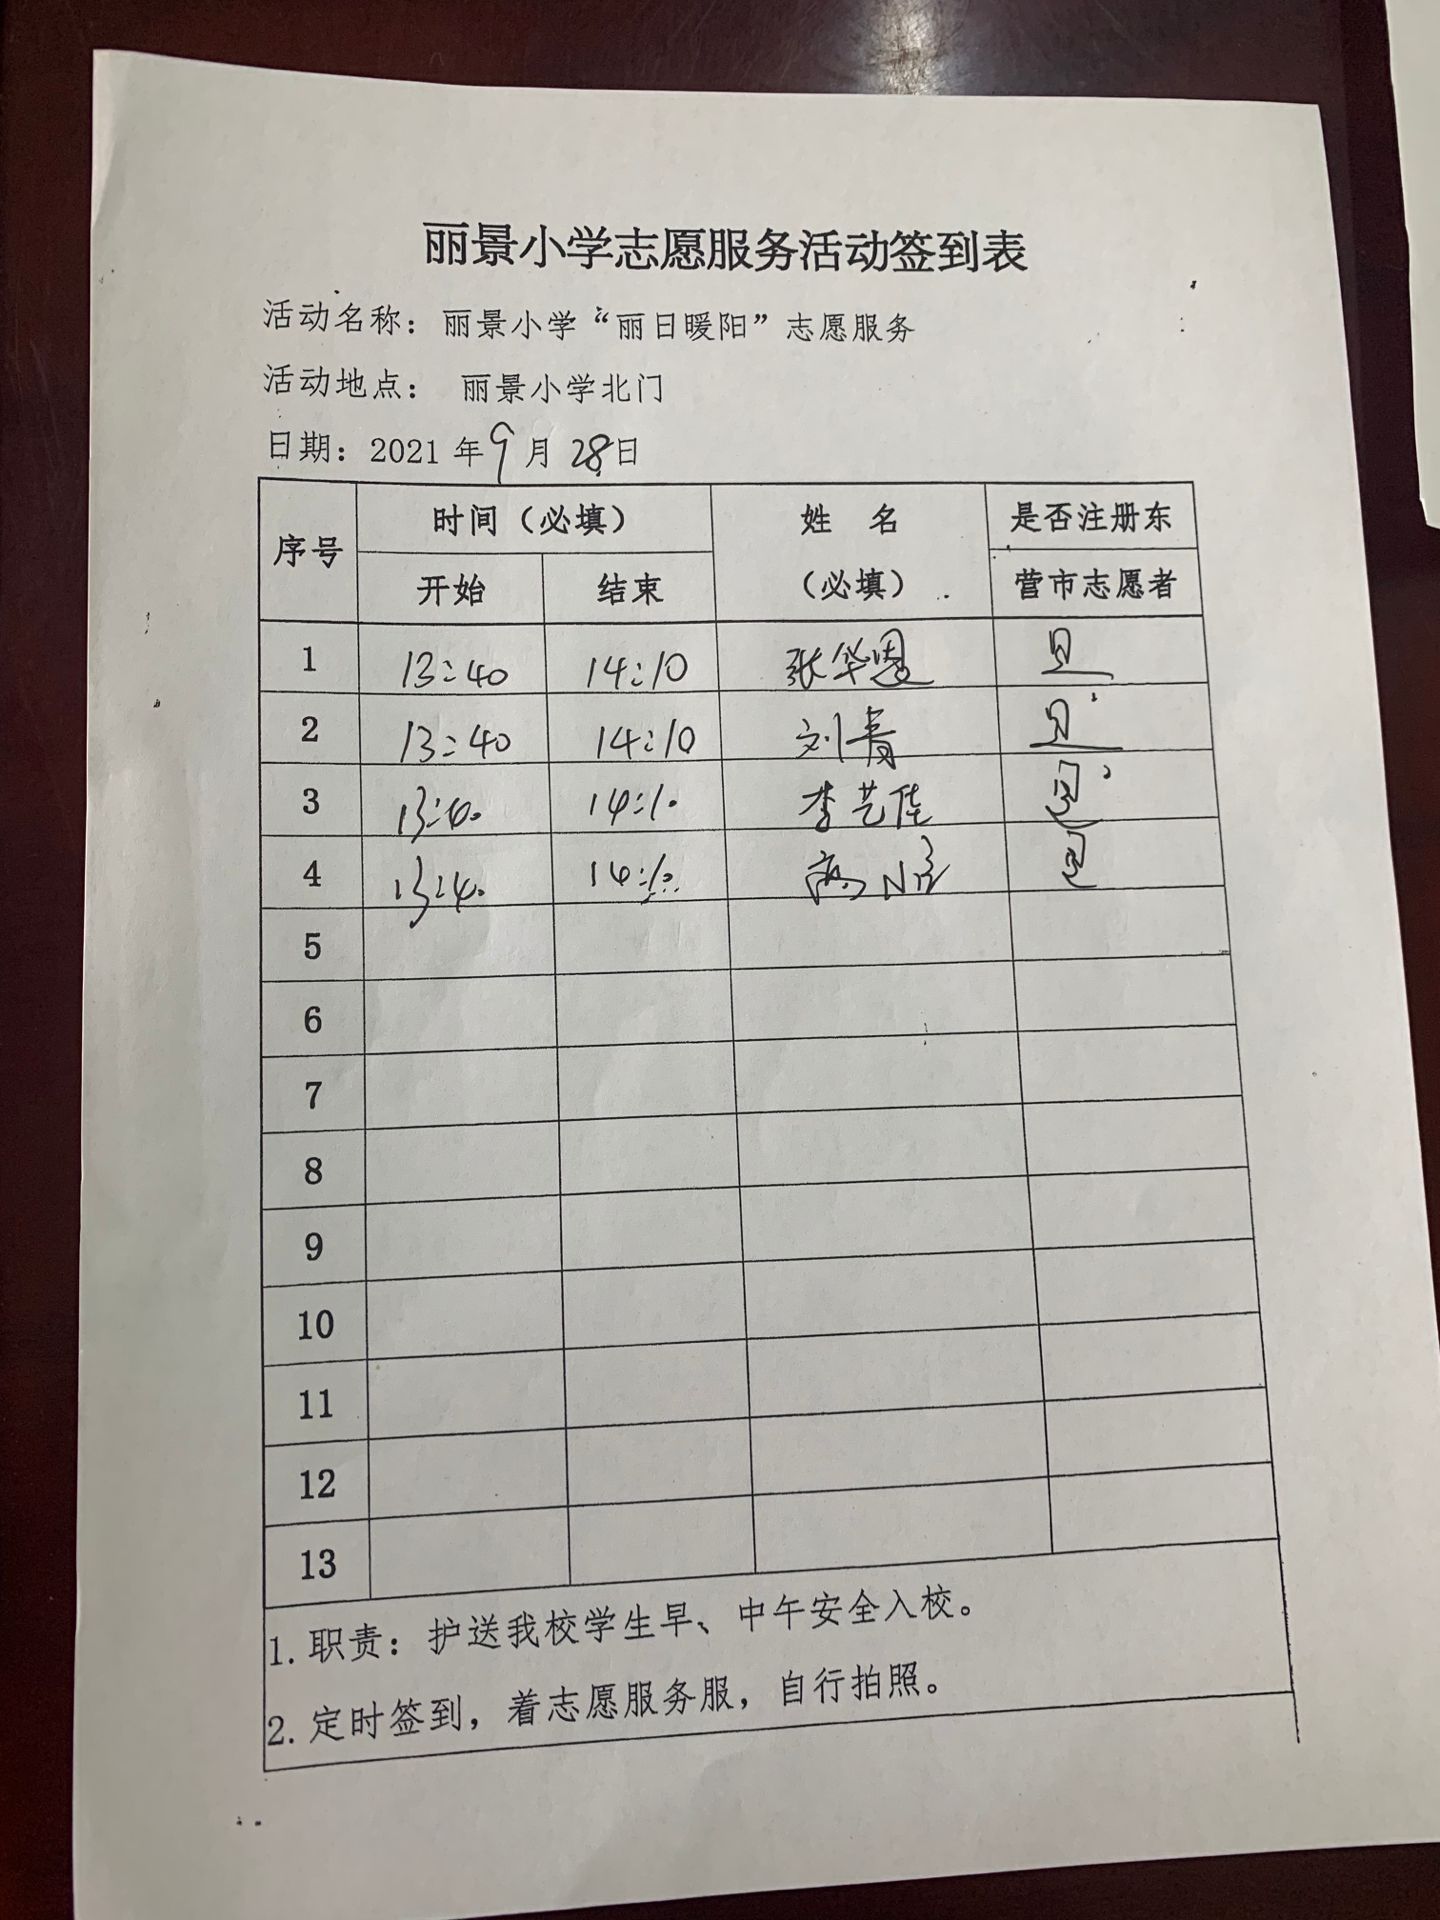 丽景小学志愿服务活动签到表
活动名称：丽景小学“丽日暖阳”志愿服务
活动地点： 丽景小学北门
日期：2021年9月28日
序号 时间（必填） 姓 名 是否注册东
开始 结束 （必填） 营市志愿者
1 13:40 14:10 张华恩 是
2 13:40 14:10 刘青 是
3 13:40 14:10 李艺佳 是
4 13:40 14:10 是
5
6
7
8
9
10
11
12
13
1. 职责：护送我校学生早、中午安全入校。
2. 定时签到，着志愿服务服，自行拍照。